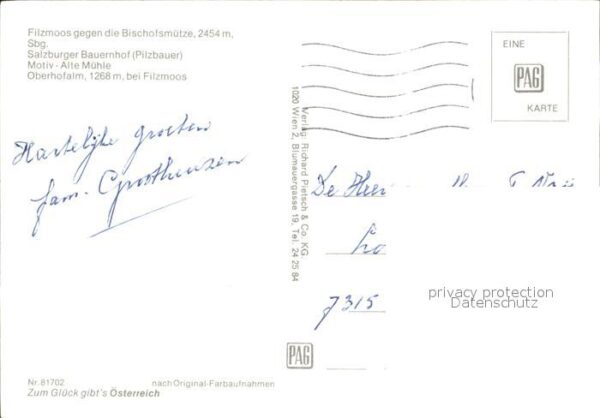 Filzmoos gegen die Bischofsmütze, 2454 m,
Sbg.
Salzburger Bauernhof (Pilzbauer)
Motiv - Alte Mühle
Oberhofalm, 1268 m, bei Filzmoos
EINE
PAG
KARTE
Hartelijke groeten
fam.
Verlag: Richard Pietsch & Co. KG.
1020 Wien 2, Blumauergasse 19, Tel. 24 25 84
De Heer
7315
privacy protection
Datenschutz
PAG
Nr. 81702
nach Original-Farbaufnahmen
Zum Glück gibt's Österreich